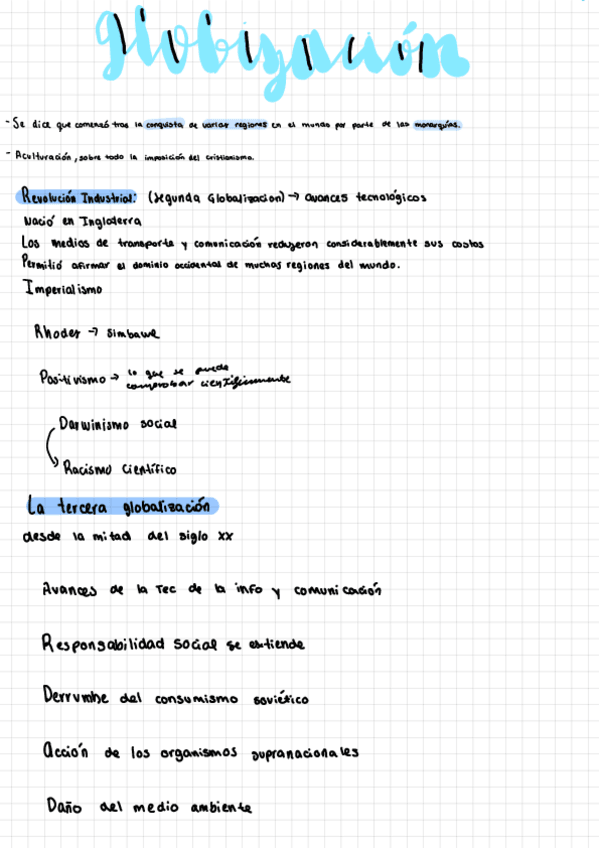 globización
- Se dice que comenzó tras la conquista de varias regiones en el mundo por parte de las monarquías.
- Aculturación, sobre todo la imposición del cristianismo.
Revolución Industrial: (Segunda Globalizacion) → avances tecnológicos
Nació en Inglaterra
Los medios de transporte y comunicación redujeron considerablemente sus costos
Permitió afirmar el dominio occidental de muchas regiones del mundo.
Imperialismo
Rhodes → Simbawe
Positivismo → lo que se puede
comprobar científicamente
Darwinismo social
Racismo científico
La tercera globalización
desde la mitad del siglo XX
Avances de la Tec de la info y comunicación
Responsabilidad social se extiende
Derrumbe del consumismo soviético
Acción de los organismos supranacionales
Daño del medio ambiente